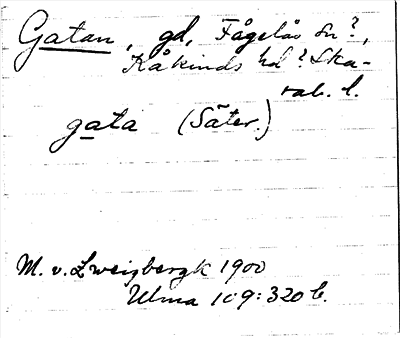 Gatan, gd, Fågelås Sn?,
Kåkinds hd? Ska-
rab. l.
gata (Säter.)
M. v. Zweigbergk 1900
Ulma 109:320 b.